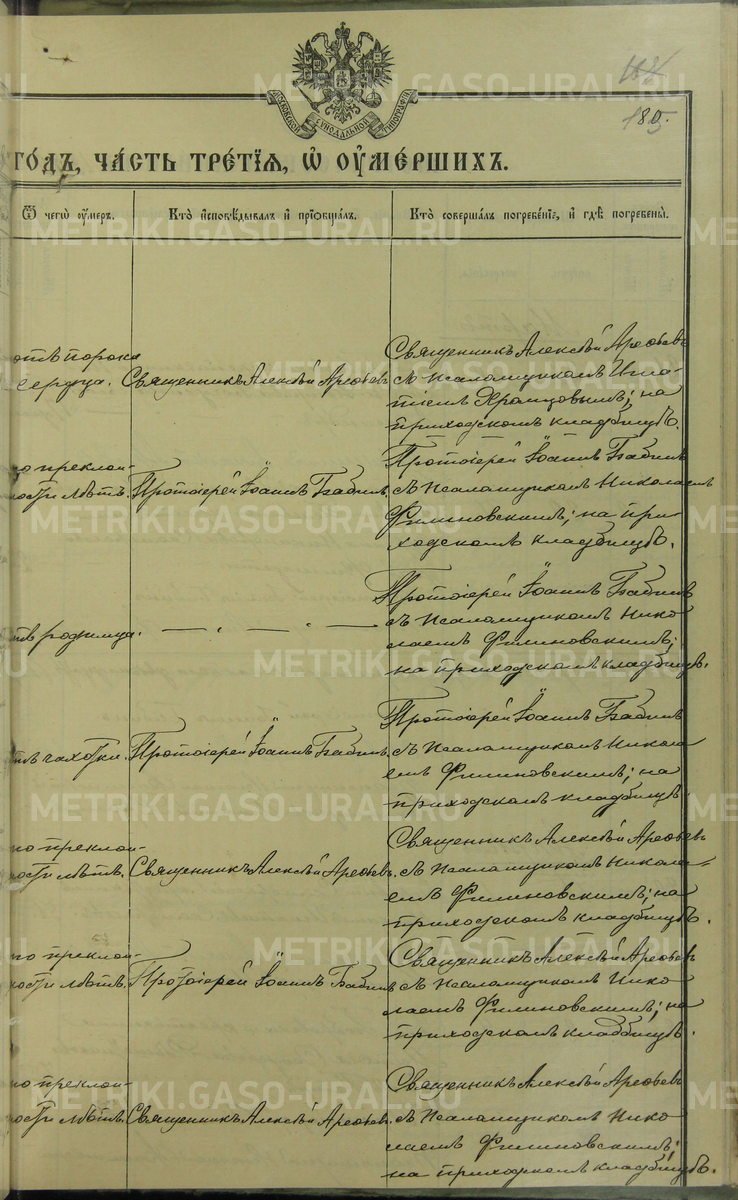 МОСКОВСКОЙ СѴНОДАЛЬНОЙ ТИПОГРАФІИ
180.
ГОДЪ, ЧАСТЬ ТРЕТІЯ, Ѡ ОУМЕРШИХЪ.
Ѿ чегѡ оумеръ.
Кто исповѣдывалъ и пріобщалъ.
Кто совершалъ погребеніе, и гдѣ погребены.
отъ порока
сердца.
Священникъ Алексѣй Арефьевъ
Священникъ Алексѣй Арефьевъ
съ псаломщикомъ Игна-
тіемъ Храмцовымъ; на
приходскомъ кладбищѣ.
по преклон-
ности лѣтъ.
Протоіерей Іоаннъ Бабинъ.
Протоіерей Іоаннъ Бабинъ
съ псаломщикомъ Николаемъ
Филиновскимъ; на при-
ходскомъ кладбищѣ.
отъ родимца.
— . — . —
Протоіерей Іоаннъ Бабинъ
съ псаломщикомъ Нико
лаемъ Филиновскимъ;
на приходскомъ кладбищѣ.
отъ чахотки.
Протоіерей Іоаннъ Бабинъ.
Протоіерей Іоаннъ Бабинъ
съ псаломщикомъ Никола
емъ Филиновскимъ; на
приходскомъ кладбищѣ.
по преклон-
ности лѣтъ.
Священникъ Алексѣй Арефьевъ
Священникъ Алексѣй Арефьевъ
съ псаломщикомъ Никола-
емъ Филиновскимъ; на
приходскомъ кладбищѣ.
по преклон-
ности лѣтъ.
Протоіерей Іоаннъ Бабинъ
Священникъ Алексѣй Арефьевъ
съ псаломщикомъ Нико
лаемъ Филиновскимъ; на
приходскомъ кладбищѣ.
по преклон-
ности лѣтъ.
Священникъ Алексѣй Арефьевъ
Священникъ Алексѣй Арефьевъ
съ псаломщикомъ Нико
лаемъ Филиновскимъ;
на приходскомъ кладбищѣ.
METRIKI.GASO-URAL.RU